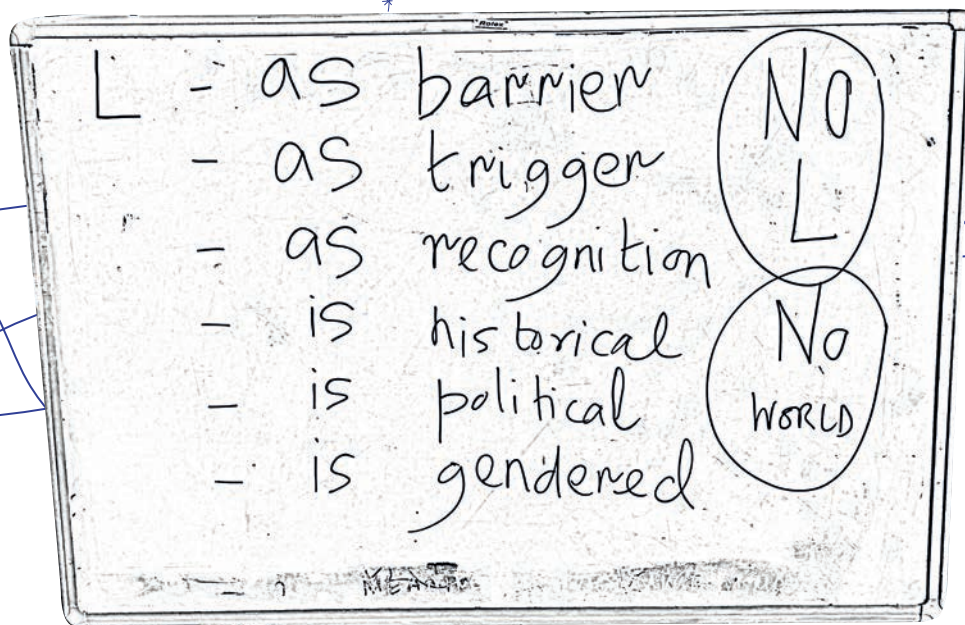 "Rolex"
L - as barrier
- as trigger
- as recognition
- is historical
- is political
- is gendered
NO
L
No
WORLD